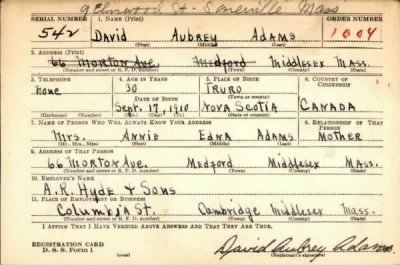 9 Elmwood St - Somerville Mass
SERIAL NUMBER 1. NAME (Print) ORDER NUMBER
542 DAVID AUBREY ADAMS 1004
(First) (Middle) (Last)
2. ADDRESS (Print)
66 MORTON AVE. MEDFORD MIDDLESEX MASS.
(Number and street or R. F. D. number) (Town) (County) (State)
3. TELEPHONE 4. AGE IN YEARS 5. PLACE OF BIRTH 6. COUNTRY OF CITIZENSHIP
none 30 TRURO
DATE OF BIRTH (Town or county)
Sept. 17, 1910 NOVA SCOTIA CANADA
(Exchange) (Number) (Mo.) (Day) (Yr.) (State or country)
7. NAME OF PERSON WHO WILL ALWAYS KNOW YOUR ADDRESS 8. RELATIONSHIP OF THAT PERSON
MRS. ANNIE EDNA ADAMS MOTHER
(Mr., Mrs., Miss) (First) (Middle) (Last)
9. ADDRESS OF THAT PERSON
66 MORTON AVE. MEDFORD MIDDLESEX MASS.
(Number and street or R. F. D. number) (Town) (County) (State)
10. EMPLOYER'S NAME
A. R. HYDE & SONS
11. PLACE OF EMPLOYMENT OR BUSINESS
Columbia St. Cambridge Middlesex Mass.
(Number and street or R. F. D. number) (Town) (County) (State)
I AFFIRM THAT I HAVE VERIFIED ABOVE ANSWERS AND THAT THEY ARE TRUE.
REGISTRATION CARD
D. S. S. Form 1
David Aubrey Adams
(Registrant's signature)